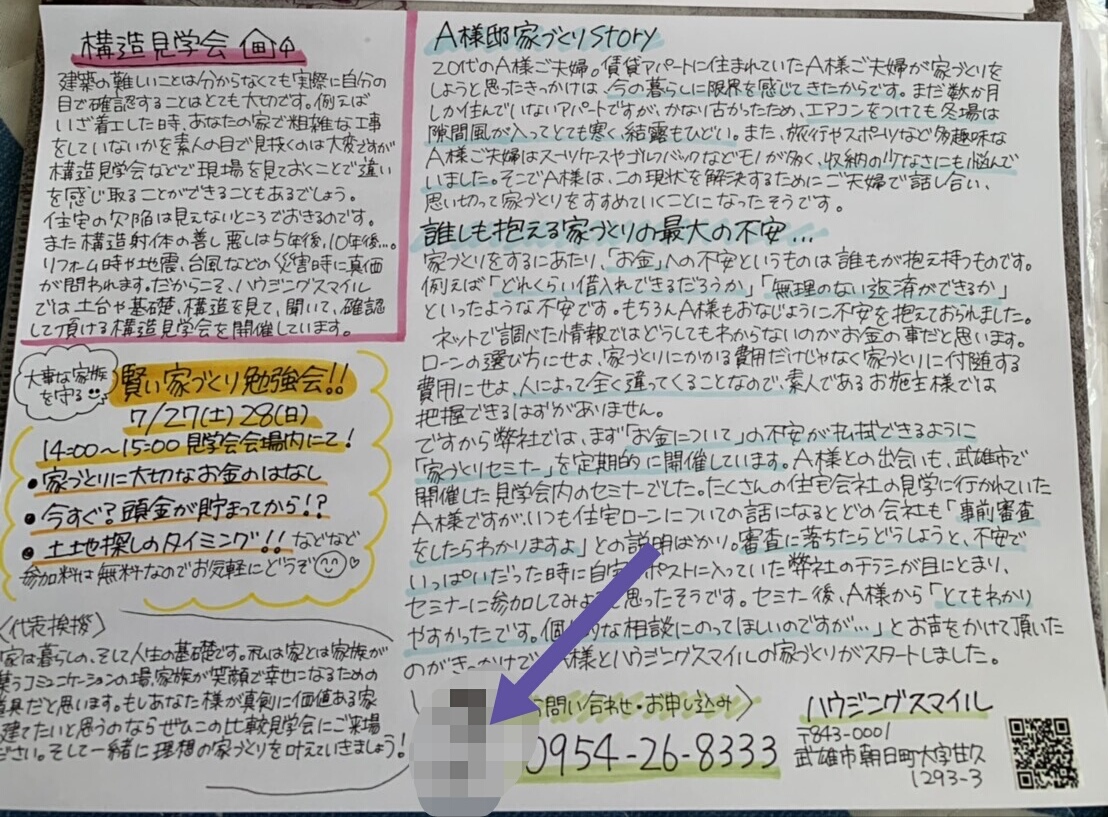 構造見学会
建築の難しいことは分からなくても実際に自分の
目で確認することはとても大切です。例えば
いざ着工した時、あなたの家で粗雑な工事
をしていないかを素人の目で見抜くのは大変ですが
構造見学会などで現場を見ておくことで違い
を感じ取ることができることもあるでしょう。
住宅の欠陥は見えないところでおきるのです。
また構造射体の善し悪しは5年後、10年後...。
リフォーム時や地震、台風などの災害時に真価
が問われます。だからこそ、ハウジングスマイル
では土台や基礎、構造を見て、聞いて、確認
して頂ける構造見学会を開催しています。
大事な家族
を守る
賢い家づくり勉強会!!
7/27(土)28(日)
14:00〜15:00 見学会会場内にて!
・家づくりに大切なお金のはなし
・今すぐ?頭金が貯まってから!?
・土地探しのタイミング!! などなど
参加料は無料なのでお気軽にどうぞ
〈代表挨拶〉
家は暮らしの、そして人生の基礎です。私は家とは家族が
集うコミュニケーションの場、家族が笑顔で幸せになるための
道具だと思います。もしあなた様が真剣に価値ある家
建てたいと思うのならぜひこの比較見学会にご来場
ださい。そして一緒に理想の家づくりを叶えていきましょう!
A様邸 家づくりStory
20代のA様ご夫婦。賃貸アパートに住まれていたA様ご夫婦が家づくりを
しようと思ったきっかけは、今の暮らしに限界を感じてきたからです。まだ数か月
しか住んでいないアパートですが、かなり古かったため、エアコンをつけても冬場は
隙間風が入ってとても寒く、結露もひどい。また、旅行やスポーツなど多趣味な
A様ご夫婦はスーツケースやゴルフバックなどモノが多く、収納の少なさにも悩んで
いました。そこでA様は、この現状を解決するためにご夫婦で話し合い、
思い切って家づくりをすすめていくことになったそうです。
誰しも抱える家づくりの最大の不安...
家づくりをするにあたり、「お金」への不安というものは誰もが抱え持つものです。
例えば「どれくらい借入れできるだろうか」「無理のない返済ができるか」
といったような不安です。もちろんA様もおなじように不安を抱えておられました。
ネットで調べた情報ではどうしてもわからないのがお金の事だと思います。
ローンの選び方にせよ、家づくりにかかる費用だけじゃなく家づくりに付随する
費用にせよ、人によって全く違ってくることなので、素人であるお施主様では
把握できるはずがありません。
ですから弊社では、まず「お金について」の不安が払拭できるように
「家づくりセミナー」を定期的に開催しています。A様との出会いも、武雄市で
開催した見学会内のセミナーでした。たくさんの住宅会社の見学に行かれていた
A様ですが、いつも住宅ローンについての話になるとどの会社も「事前審査
をしたらわかりますよ」との説明ばかり。審査に落ちたらどうしようと、不安で
いっぱいだった時に自宅 ポストに入っていた弊社のチラシが目にとまり、
セミナーに参加してみよ と思ったそうです。セミナー後、A様から「とてもわかり
やすかったです。個 的な相談にのってほしいのですが...」とお声をかけて頂いた
のがきっかけで 様とハウジングスマイルの家づくりがスタートしました。
お問い合わせ・お申し込み〉
0954-26-8333
ハウジングスマイル
〒843-0001
武雄市朝日町大字甘久
1293-3